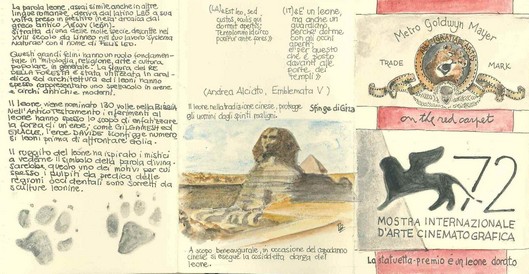 La parola leone, assai simile anche in altre
lingue romanze, deriva dal latino Leo a sua
volta preso in prestito
greco antico
Si tratta di una delle molte specie descritte nel
XVIII secolo da Linneo nel suo lavoro Systema
Naturae con il nome di Felis leo.
Questi grandi felini hanno un ruolo fondamen-
tale in mitologia, religione, arte e cultura
popolare, in generale. La figura del RE
DELLA FORESTA è stata utilizzata in aral-
dica ed architettura ed i leoni hanno
spesso rappresentato uno spettacolo in arene
e circhi antichi e moderni.
Il leone viene nominato 130 volte nella BIBBIA
Nell'Antico Testamento i riferimenti al
leone hanno spesso lo scopo di enfatizzare
la forza di un eroe; come GILGAMESH ed
ERACLE, l'eroe DAVIDE sconfigge numero
si leoni prima di affrontare Golia.
Il ruggito del leone ha ispirato i mistici
a vederne il simbolo della parola divina.
Sarebbe questo uno dei motivi per cui
spesso i pulpiti da predica delle
regioni occidentali sono sorretti da
sculture leonine.
(LA) «Est leo, sed
custos, oculis quia
dormit apertis;
Templorum idcirco
ponitur ante fores.»
(IT) «È un leone,
ma anche un
guardiano,
perché dorme
con gli occhi
aperti
e per questo
che è posto
davanti alle
porte dei
templi»
(Andrea Alciato, Emblemata V)
Il leone nella tradizione cinese, protegge
gli uomini dagli spiriti maligni.
Sfinge di Giza
A scopo beneaugurale, in occasione del capodanno
cinese si esegue la cosiddetta danza del
leone.
Metro Goldwyn Mayer
TRADE MARK
on the red carpet
72
MOSTRA INTERNAZIONALE
D'ARTE CINEMATOGRAFICA
La statuetta-premio è un leone dorato